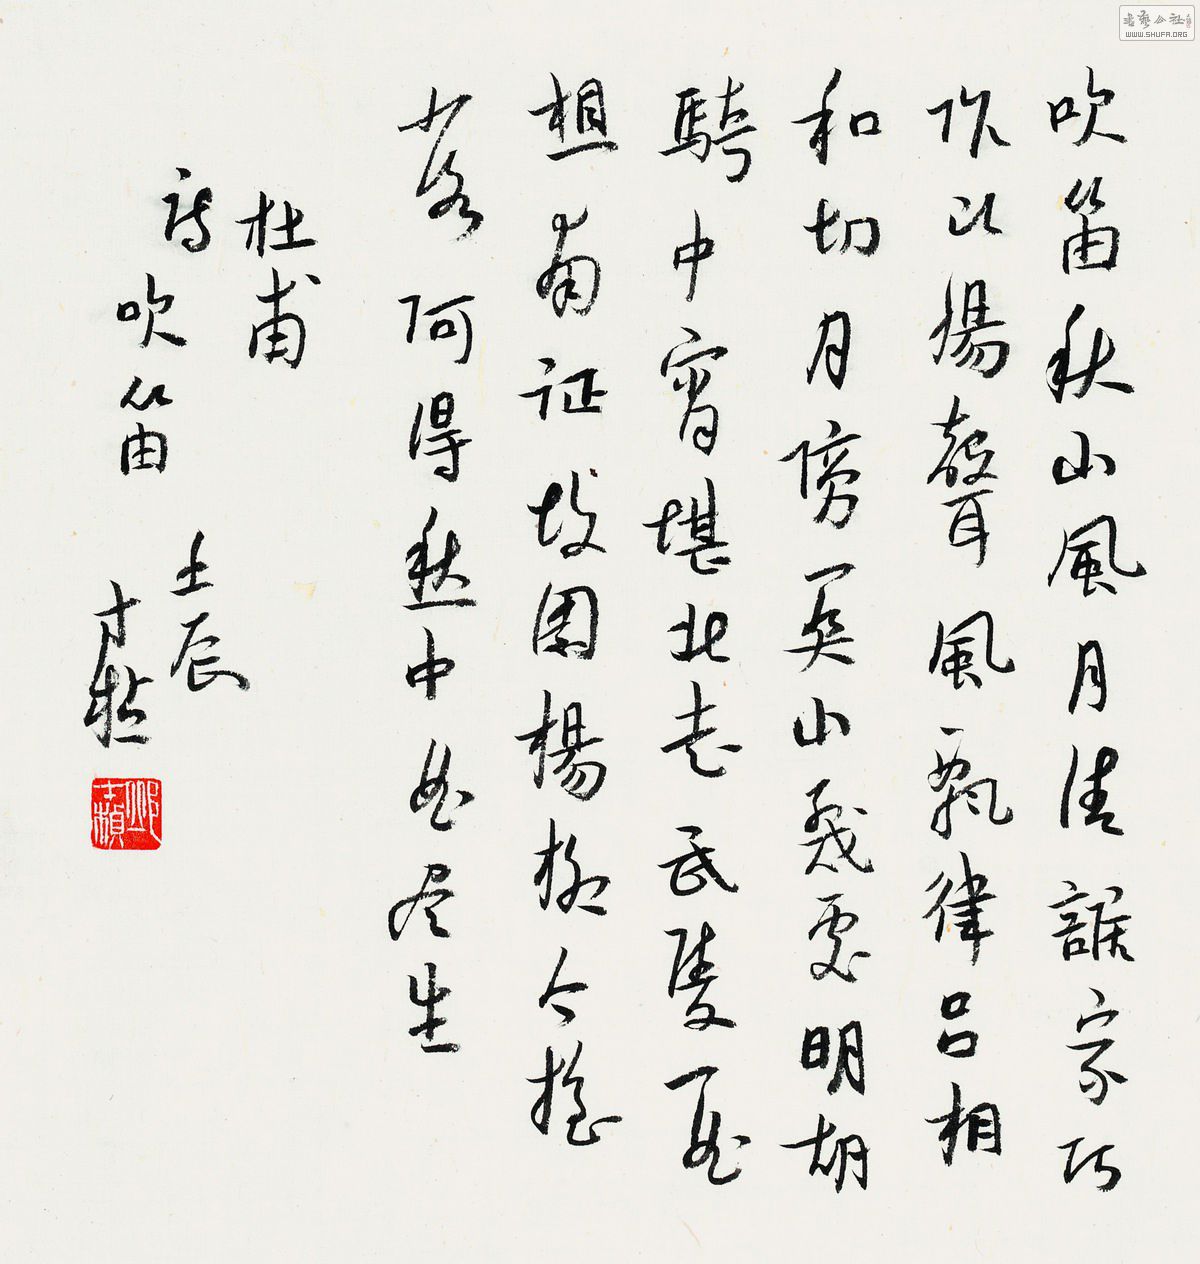 吹笛秋山風月清誰家巧
作斷腸聲風飄律呂相
和切月傍關山幾處明胡
騎中宵堪北走武陵一曲
想南征故園楊柳今搖
落何得愁中曲盡生
杜甫
詩吹笛
壬辰
書藝公社
WWW.SHUFA.ORG